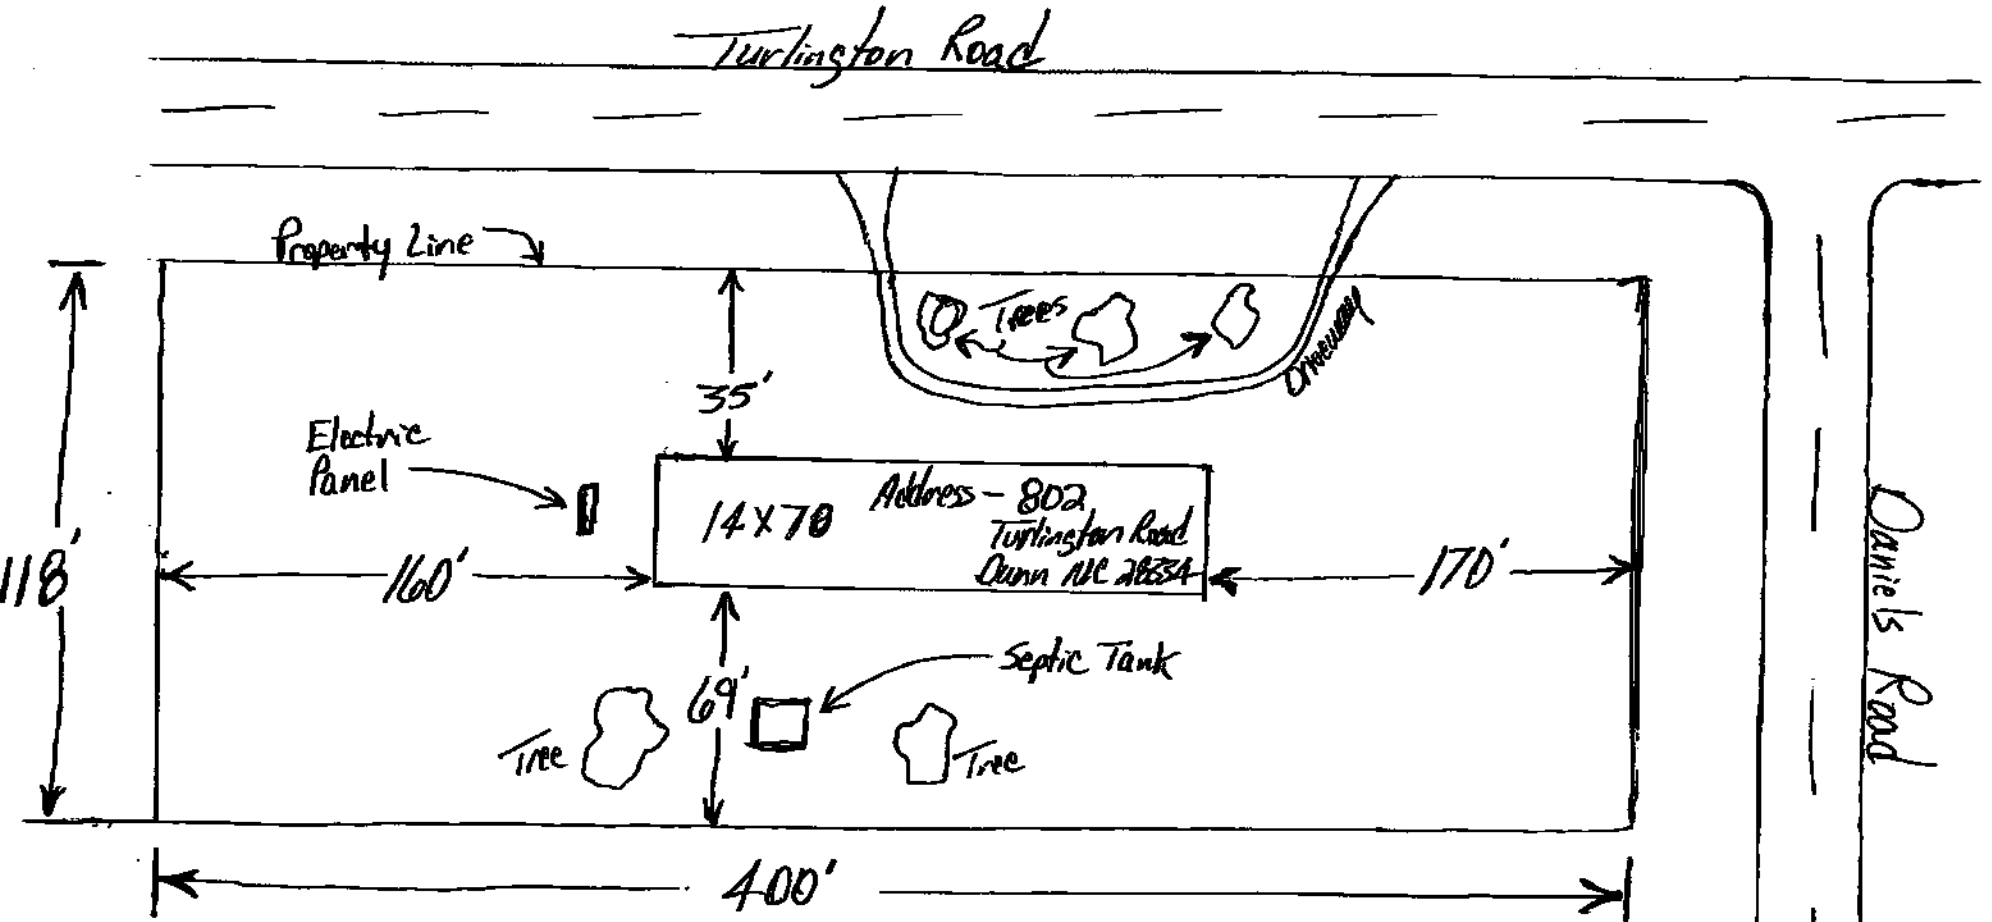 Turlington Road
Property Line
Trees
Driveway
35'
Electric
Panel
14 X 70
Address - 802
Turlington Road
Dunn NC 28334
118'
160'
170'
Daniels Road
Septic Tank
69'
Tree
Tree
400'